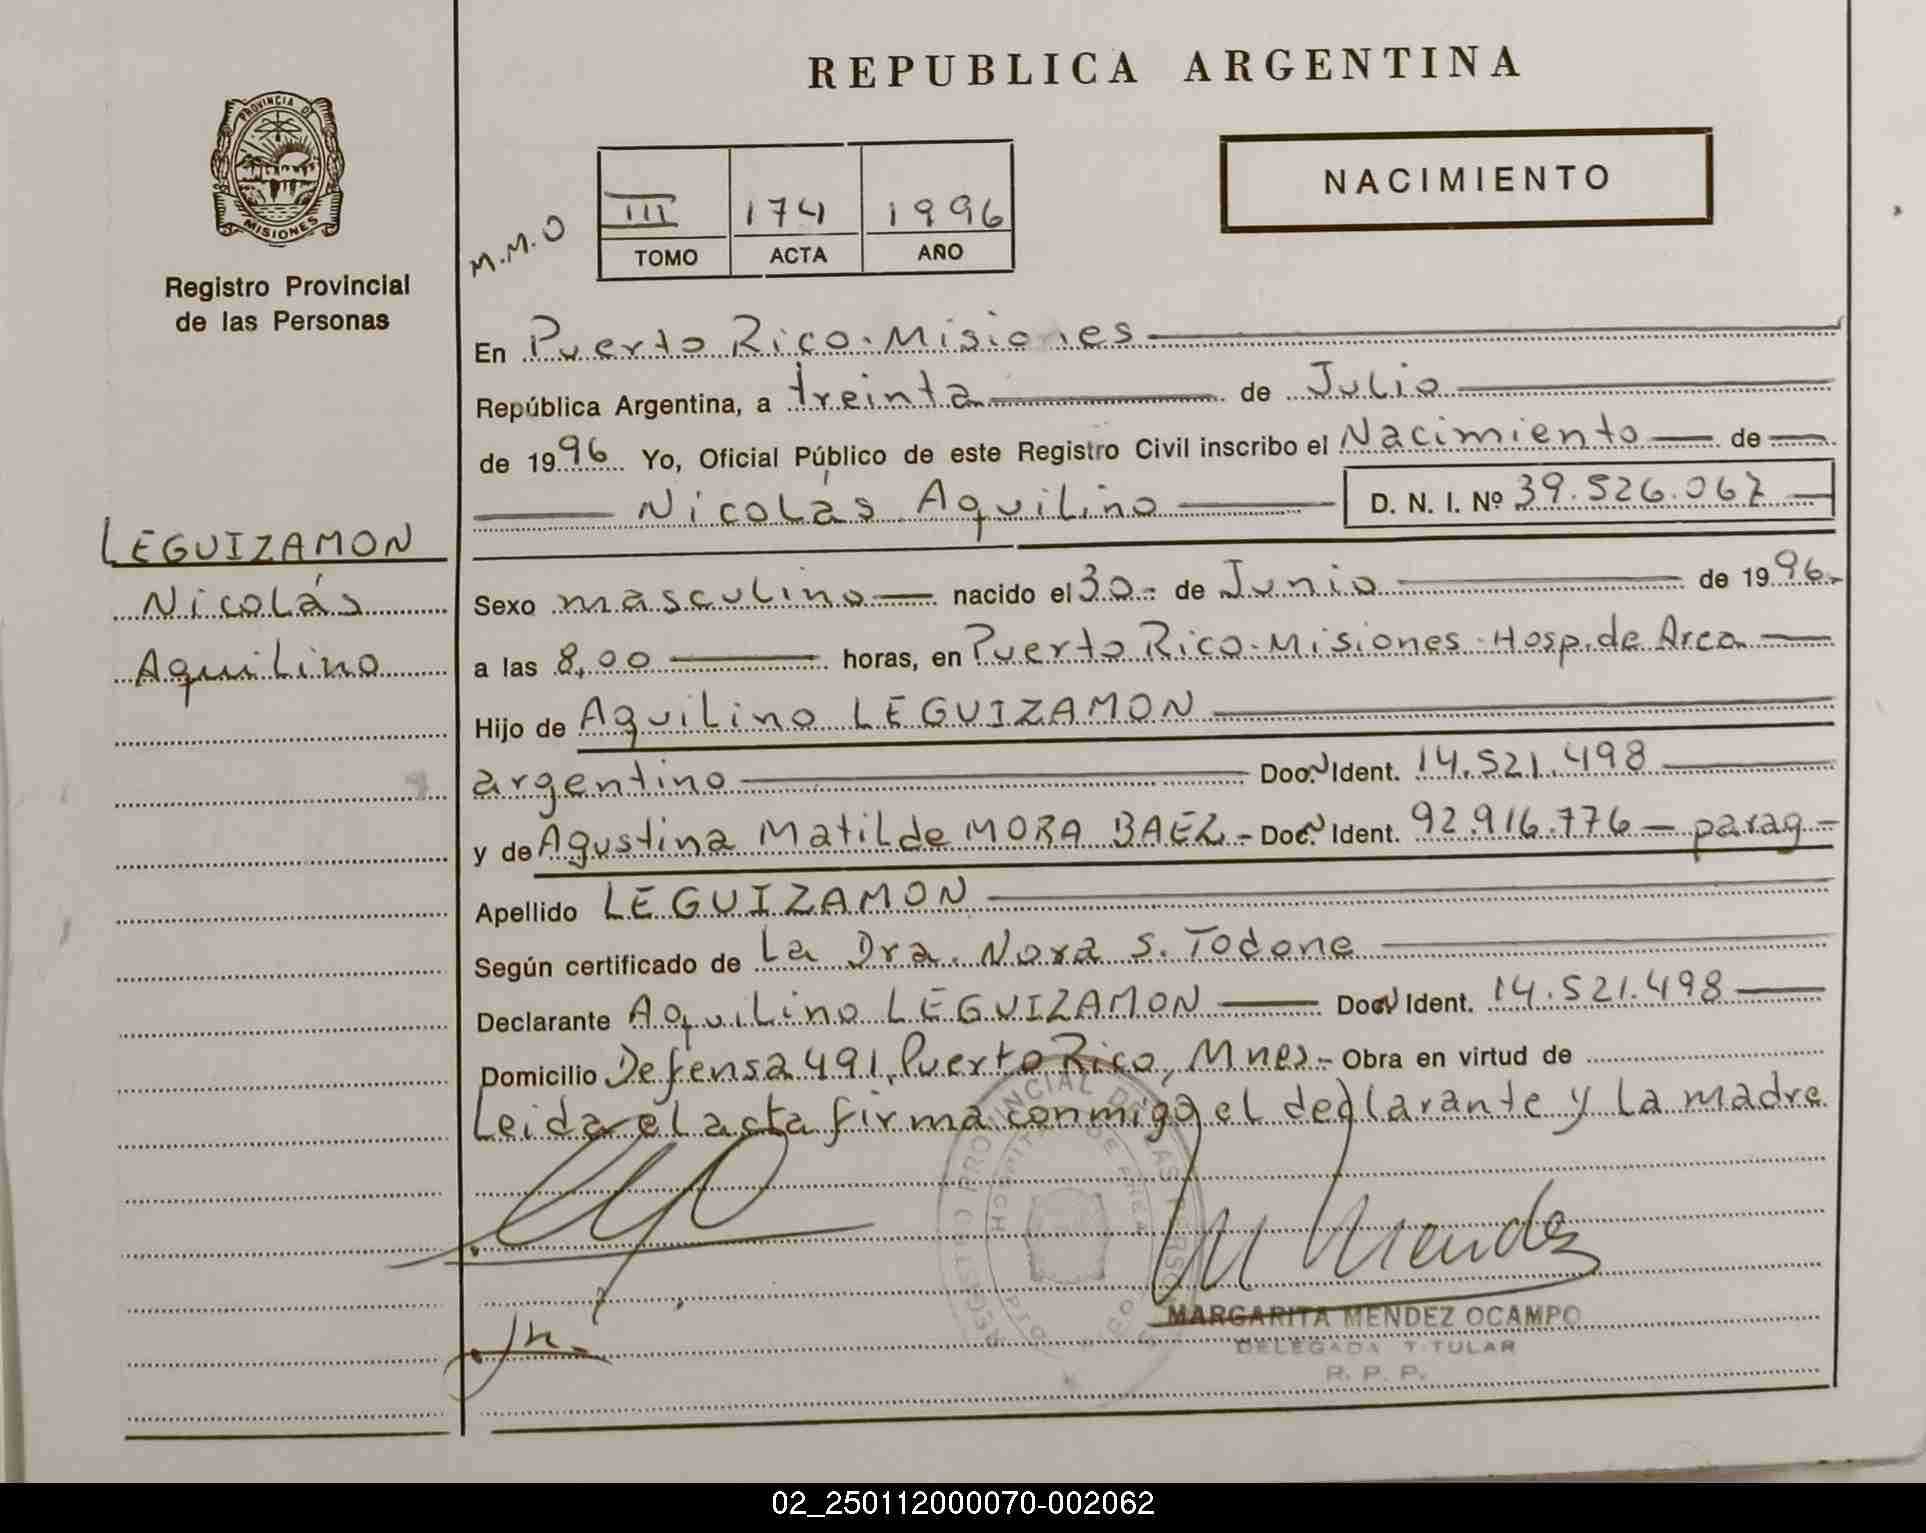 REPUBLICA ARGENTINA
PROVINCIA DE
MISIONES
Registro Provincial
de las Personas
M.M.O
III 174 1996
TOMO ACTA AÑO
NACIMIENTO
En Puerto Rico - Misiones
República Argentina, a treinta de Julio
de 1996 Yo, Oficial Público de este Registro Civil inscribo el Nacimiento de
Nicolás Aquilino D. N. I. Nº 39.526.067
LEGUIZAMON
Nicolás
Aquilino
Sexo masculino nacido el 30 - de Junio de 1996
a las 8,00 horas, en Puerto Rico - Misiones - Hosp. de Area
Hijo de Aquilino LEGUIZAMON
argentino Doc. Ident. 14.521.498
y de Agustina Matilde MORA BAEZ - Doc. Ident. 92.916.776 - parag -
Apellido LEGUIZAMON
Según certificado de La Dra. Nora S. Todone
Declarante Aquilino LEGUIZAMON Doc. Ident. 14.521.498
Domicilio Defensa 491, Puerto Rico, Mnes - Obra en virtud de
Leida el acta firma conmigo el declarante y la madre
REGISTRO PROVINCIAL DE LAS PERSONAS
HOSPITAL DE AREA
M Mendez
MARGARITA MENDEZ OCAMPO
DELEGADA TITULAR
R. P. P.
02_250112000070-002062